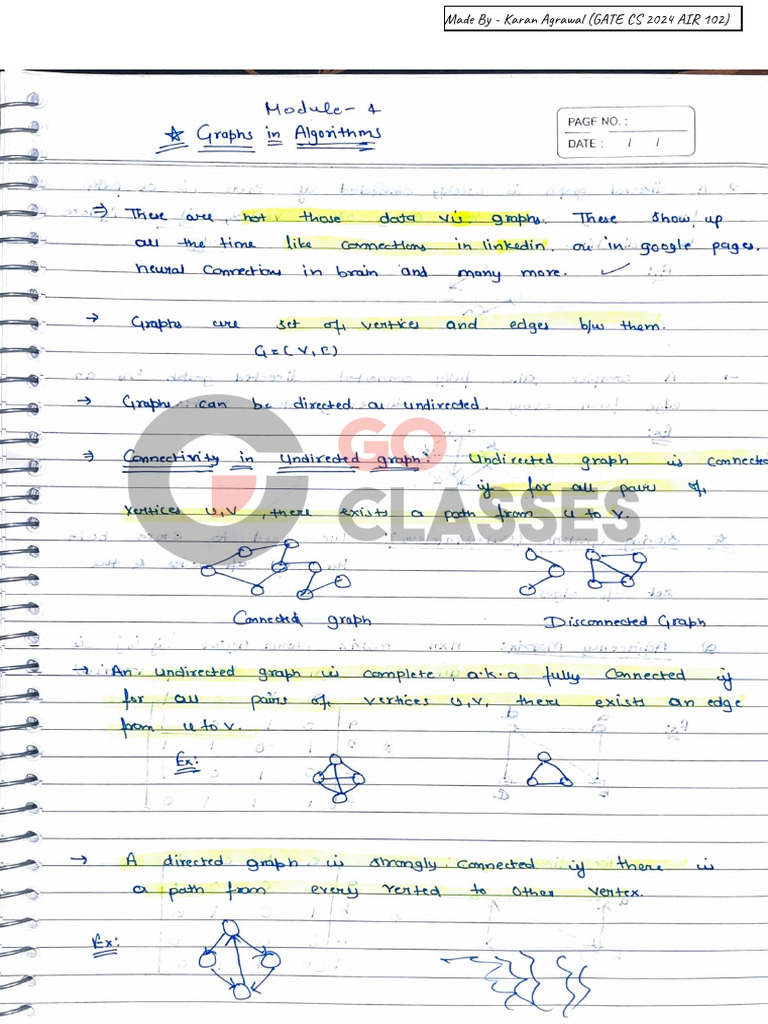 Made By - Karan Agrawal (GATE CS 2024 AIR 102)
Module - 4
☆ Graphs in Algorithms
PAGE NO. :
DATE : / /
⇒ These are not those data vis graphs. These show up
all the time like connections in linkedin. or in google pages.
neural connections in brain and many more.
→ Graphs are set of vertices and edges b/w them.
G = (V, E)
→ Graphs can be directed or undirected.
⇒ Connectivity in undirected graph: Undirected graph is connected
if for all pairs of
vertices u,v, there exists a path from u to v.
GO
CLASSES
Connected graph Disconnected Graph
→ An undirected graph is complete a.k.a fully connected if
for all pairs of vertices u,v, there exists an edge
from u to v.
Ex:
→ A directed graph is strongly connected if there is
a path from every verted to other vertex.
Ex: